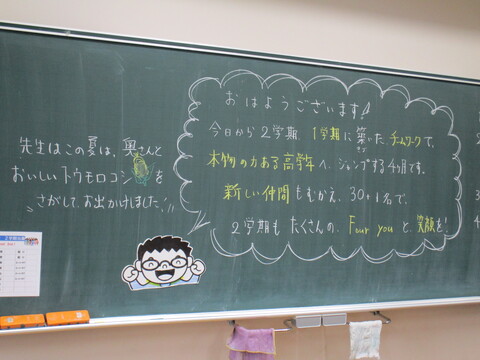 先生はこの夏は、奥さんと
おいしいトウモロコシを
さがして、お出かけしました。
おはようございます!
今日から2学期。1学期に築いたチームワークで、
本物の力ある高学年へ、ジャンプする4ヶ月です。
新しい仲間もむかえ、30+1名で、
2学期もたくさんの、Four youと、笑顔を!